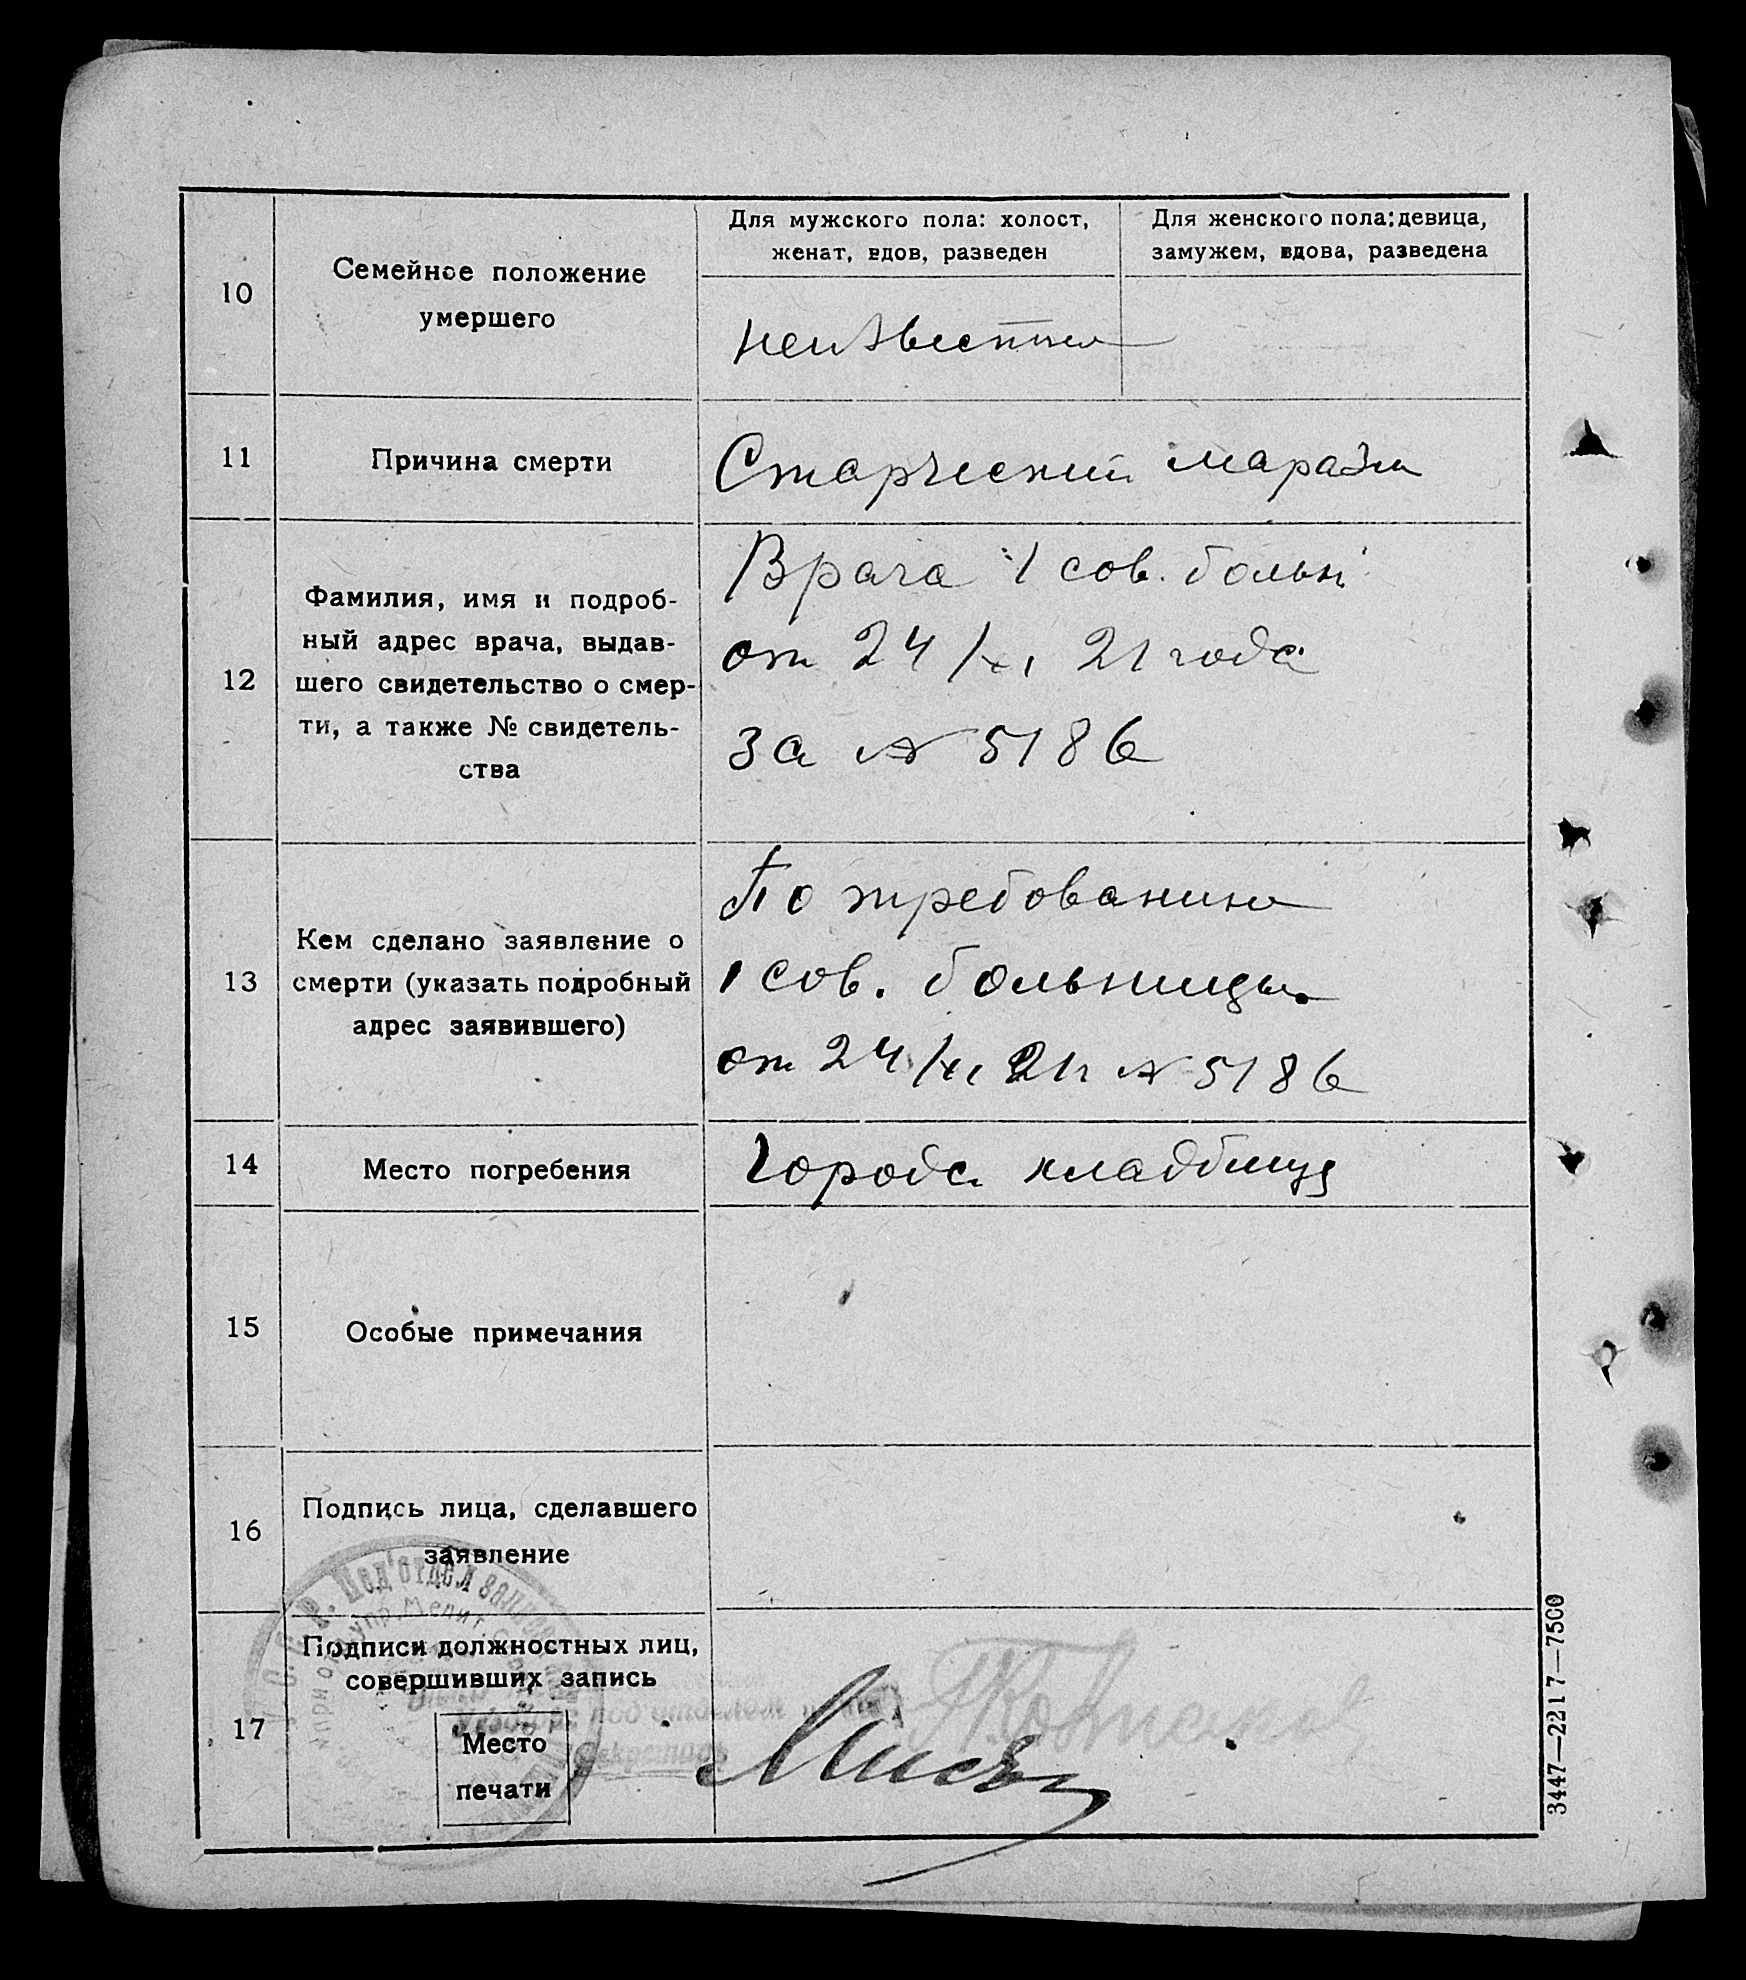 10
Семейное положение
умершего
Для мужского пола: холост,
женат, вдов, разведен
Для женского пола: девица,
замужем, вдова, разведена
неизвестно
11
Причина смерти
Старческий маразм
12
Фамилия, имя и подроб-
ный адрес врача, выдав-
шего свидетельство о смер-
ти, а также № свидетель-
ства
Врача 1 сов. больн
от 24/XI 21 года
за № 5186
13
Кем сделано заявление о
смерти (указать подробный
адрес заявившего)
По требованию
1 сов. больницы
от 24/XI 21 г № 5186
14
Место погребения
Города кладбище
15
Особые примечания
16
Подпись лица, сделавшего
заявление
17
Подписи должностных лиц,
совершивших запись
Место
печати
С. Р. Под'отдел
упр. Мелит.
под отделом
Секретарь
3447—2217—7500